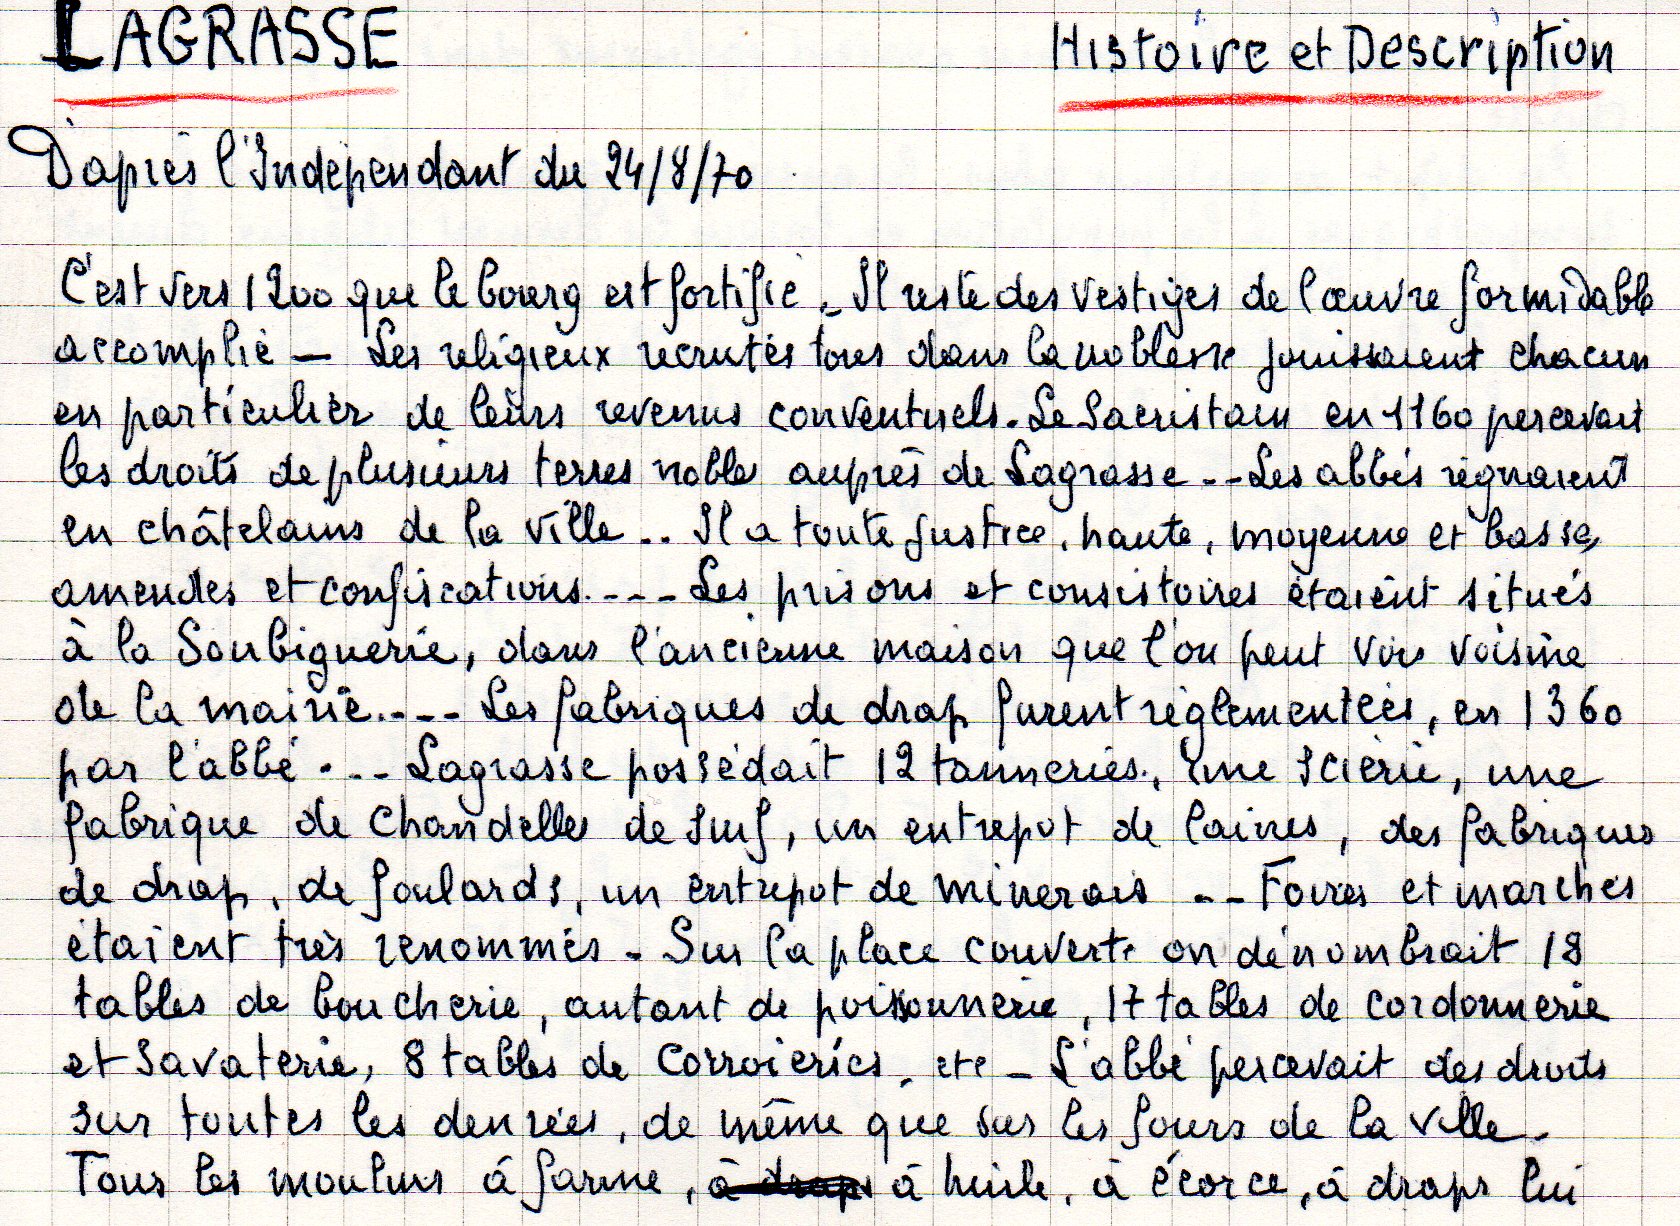 LAGRASSE Histoire et Description
D'après l'Indépendant du 24/8/70
C'est vers 1200 que le bourg est fortifié. Il reste des vestiges de l'œuvre formidable
accomplie — Les religieux recrutés tous dans la noblesse jouissaient chacun
en particulier de leurs revenus conventuels. Le Sacristain en 1160 percevait
les droits de plusieurs terres nobles auprès de Lagrasse -- Les abbés régnaient
en châtelains de la ville .. Il a toute justice, haute, moyenne et basse,
amendes et confiscations. ---- Les prisons et consistoires étaient situés
à la Soubiguerie, dans l'ancienne maison que l'on peut voir voisine
de la mairie. ---- Les fabriques de drap furent réglementées, en 1360
par l'abbé . -- Lagrasse possédait 12 tanneries, une scierie, une
fabrique de chandelles de suif, un entrepot de laines, des fabriques
de drap, de foulards, un entrepot de minerais -- Foires et marchés
étaient très renommés - Sur la place couverte on dénombrait 18
tables de boucherie, autant de poissonnerie, 17 tables de cordonnerie
et savaterie, 8 tables de corroieries, etc - L'abbé percevait des droits
sur toutes les denrées, de même que sur les fours de la ville -
Tous les moulins à farine, à draps à huile, à écorce, à draps lui